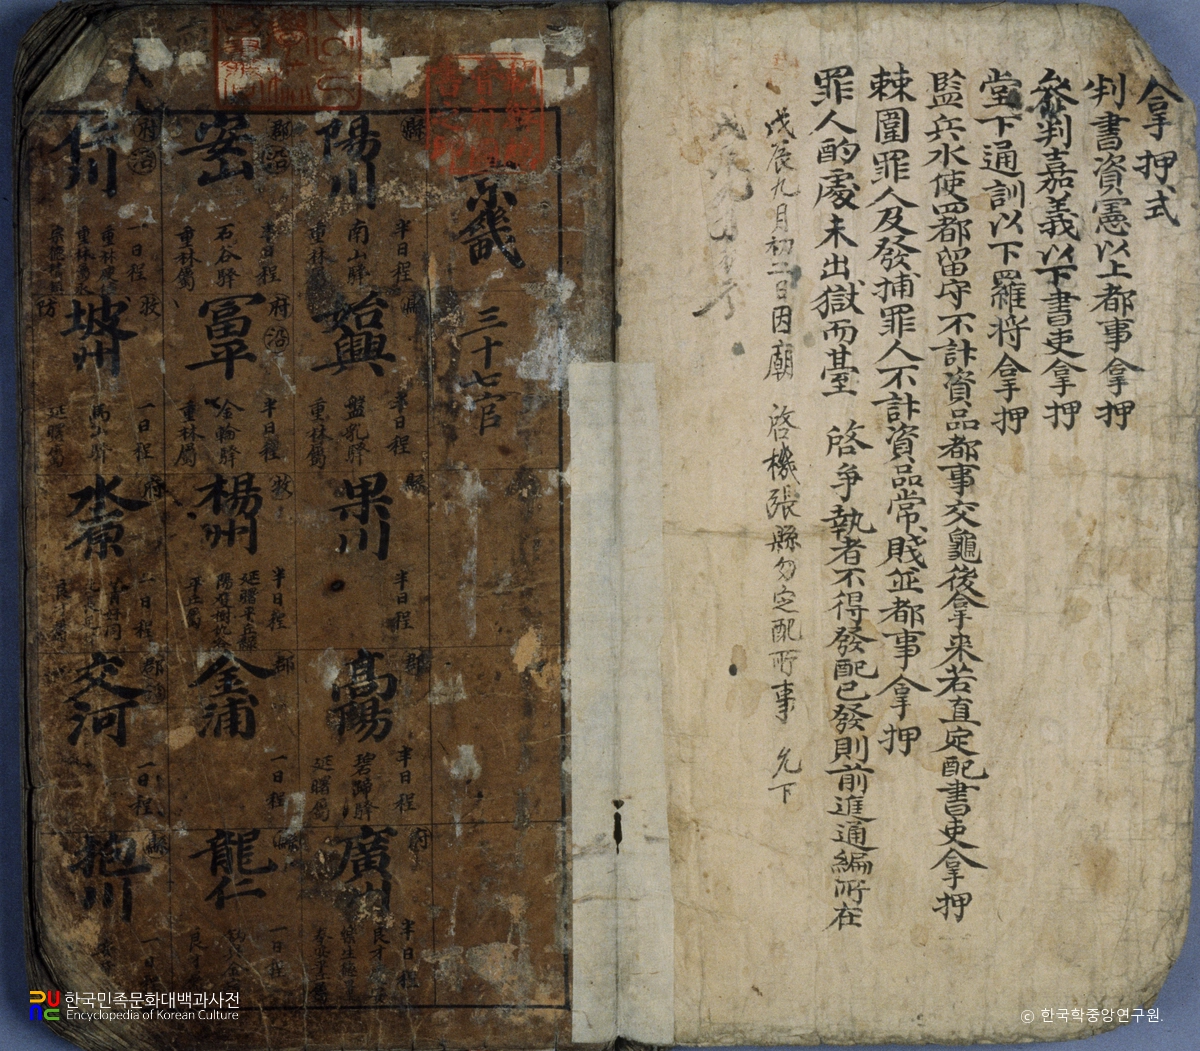 拿押式
判書資憲以上都事拿押
參判嘉義以下書吏拿押
堂下通訓以下羅將拿押
監兵水使四都留守不計資品都事交龜後拿來若直定配書吏拿押
棘圍罪人及發捕罪人不計資品常賤並都事拿押
罪人酌處未出獄而臺 啓爭執者不得發配已發則前進通編所在
戊辰九月初二日因廟 啓機張縣勿定配所事 允下
京畿 三十七官
縣 陽川 半日程 南山驛 重林屬
縣 始興 半日程 盤乳驛 重林屬
縣 果川 半日程
郡 高陽 半日程 碧蹄驛 延曙屬
府 廣州 半日程
郡 沿 安山 半日程 石谷驛 重林屬
府 沿 富平 半日程 金輪驛 重林屬
牧 楊州 半日程
郡 金浦 一日程
龍仁 一日程
府 沿 仁川 一日程
牧 坡州 一日程 馬山驛 延曙屬
府 水原 一日程
郡 交河 一日程
縣 抱川 一日
한국민족문화대백과사전
Encyclopedia of Korean Culture
ⓒ 한국학중앙연구원.